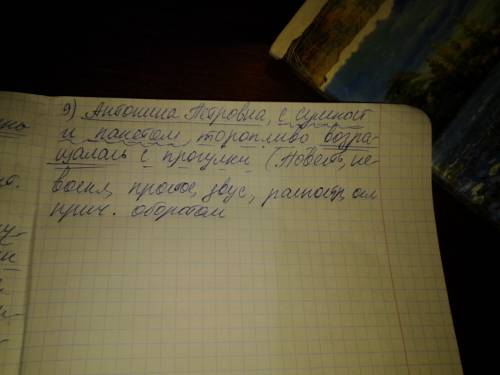 9) Антонина Петровна, с сумкой
и пакетом торопливо возра-
щалась с прогулки (Повеств, не-
воскл, простое, двус, распостр, осл
прич. оборотом